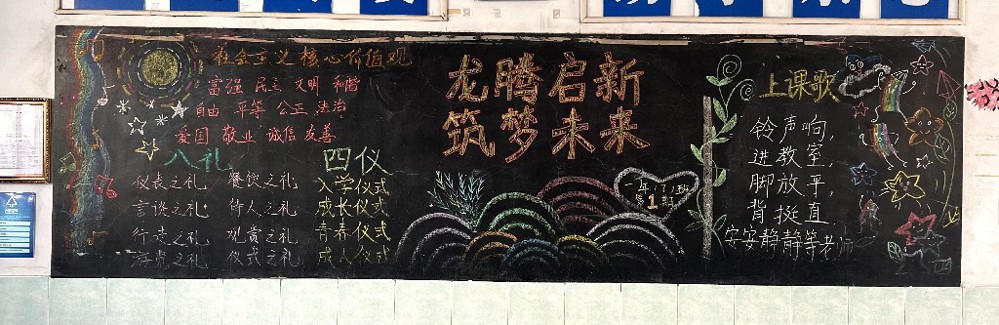 社会主义核心价值观
富强 民主 文明 和谐
自由 平等 公正 法治
爱国 敬业 诚信 友善
八礼
仪表之礼 餐饮之礼
言谈之礼 待人之礼
行走之礼 观赏之礼
仪式之礼
四仪
入学仪式
成长仪式
青春仪式
成人仪式
龙腾启新
筑梦未来
第1期
上课歌
铃声响,
进教室,
脚放平,
背挺直
安安静静等老师